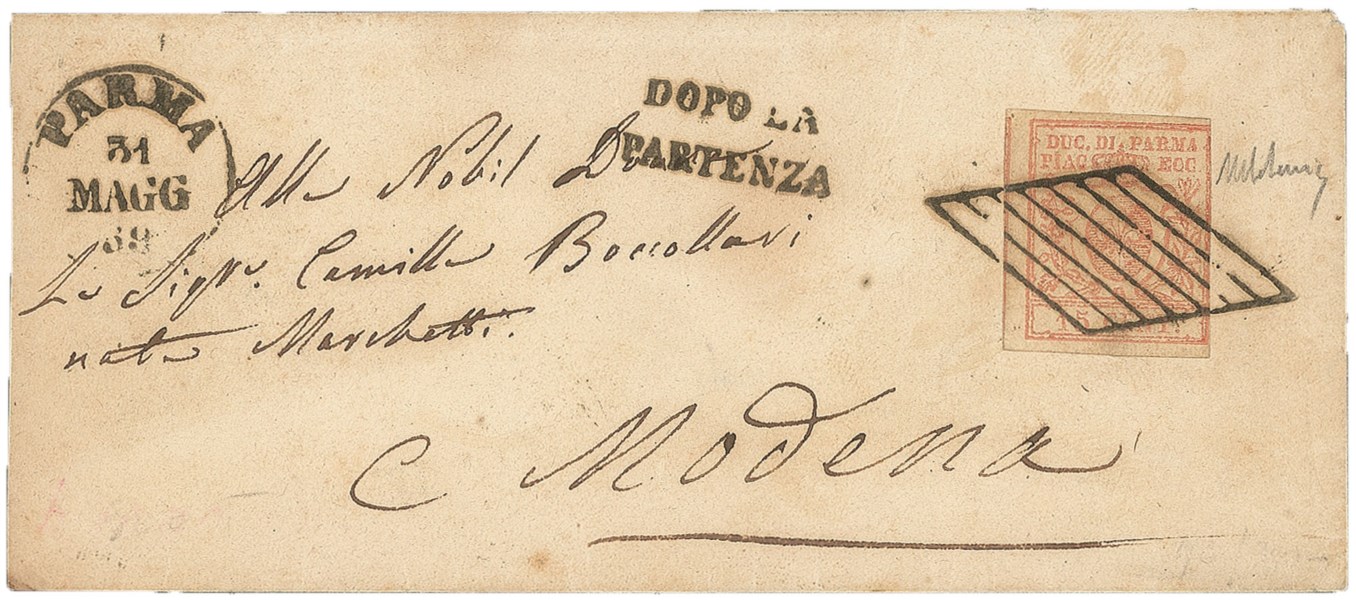 PARMA
31
MAGG
59
DOPO LA
PARTENZA
DUC. DI. PARMA
PIAC ECC
15
Alla Nobil Donna
La Sigra. Camilla Boccollari
nata Marchetti.
Modena